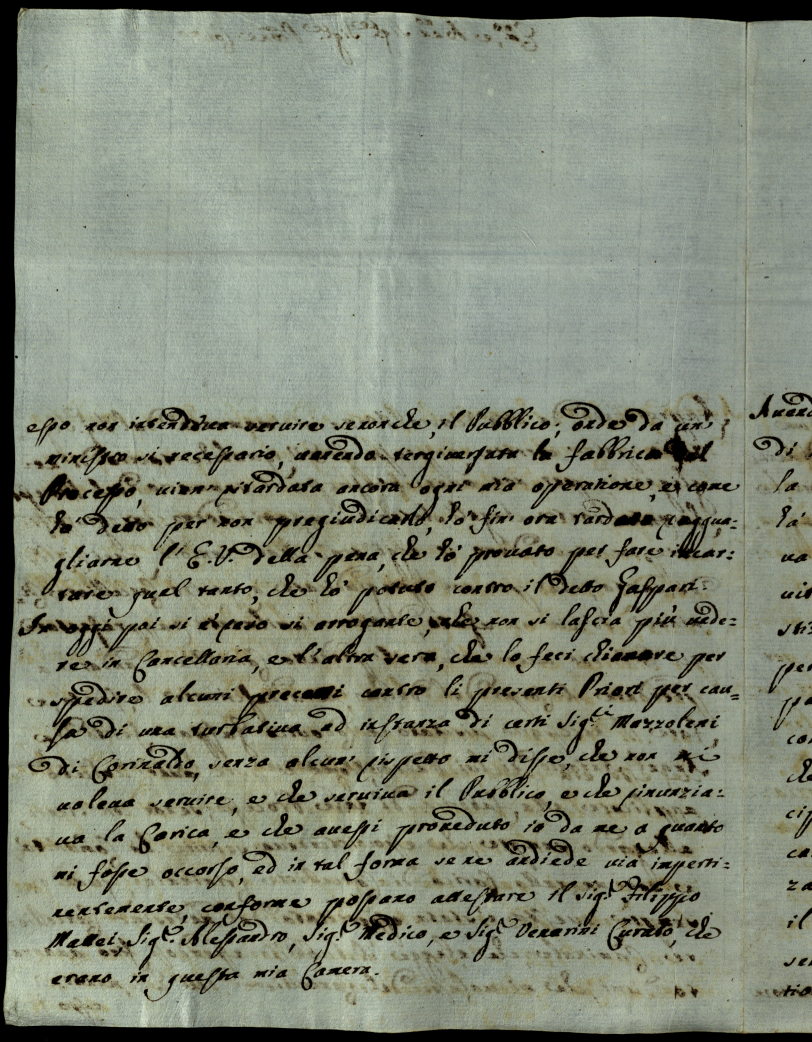 esso non intendeva servire senonche, il Pubblico; onde da un
ministro si necessario, avendo tergiversata la fabbrica del
Processo, vien ritardata ancora ogni mia operazione, e come
hò detto per non pregiudicarlo, hò fin ora tardato raggua:
gliarne l'E.V. della pena, che hò provato per fare incar:
tare quel tanto, che hò potuto contro il detto Gaspari.
In oggi poi si è reso si arrogante, che non si lascia più vede:
re in Cancellaria, e l'altra sera, che lo feci chiamare per
spedire alcuni precetti contro li presenti Priori per cau:
sa di una turbativa ad instanza di certi Sig.ri Mazzoleni
di Corinaldo, senza alcun rispetto mi disse, che non mi
voleva servire, e che serviva il Pubblico, e che rinunzia:
va la Carica, e che avessi proveduto io da me a quanto
mi fosse occorso, ed in tal forma se ne andiede via imperti:
nentemente, conforme possano attestare il Sig.r Filippo
Mattei Sig.r Alessandro, Sig.r Medico, e Sig.r Venarini Curato, che
erano in questa mia Camera.
Avend
di
la
hà
va
vit
sti
per
pa
con
che
cip
ca
za
il
se
tio